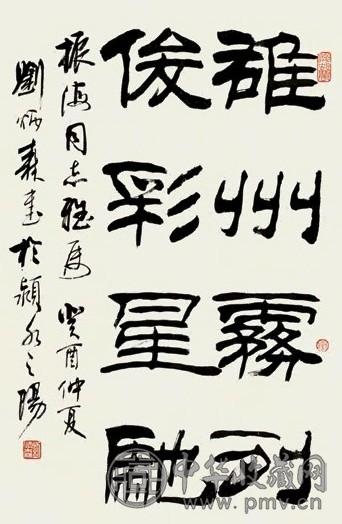 雄州霧列
俊彩星馳
振海同志雅属 癸酉仲夏
劉炳森書於潁水之陽
中华收藏网
www.pmv.cn